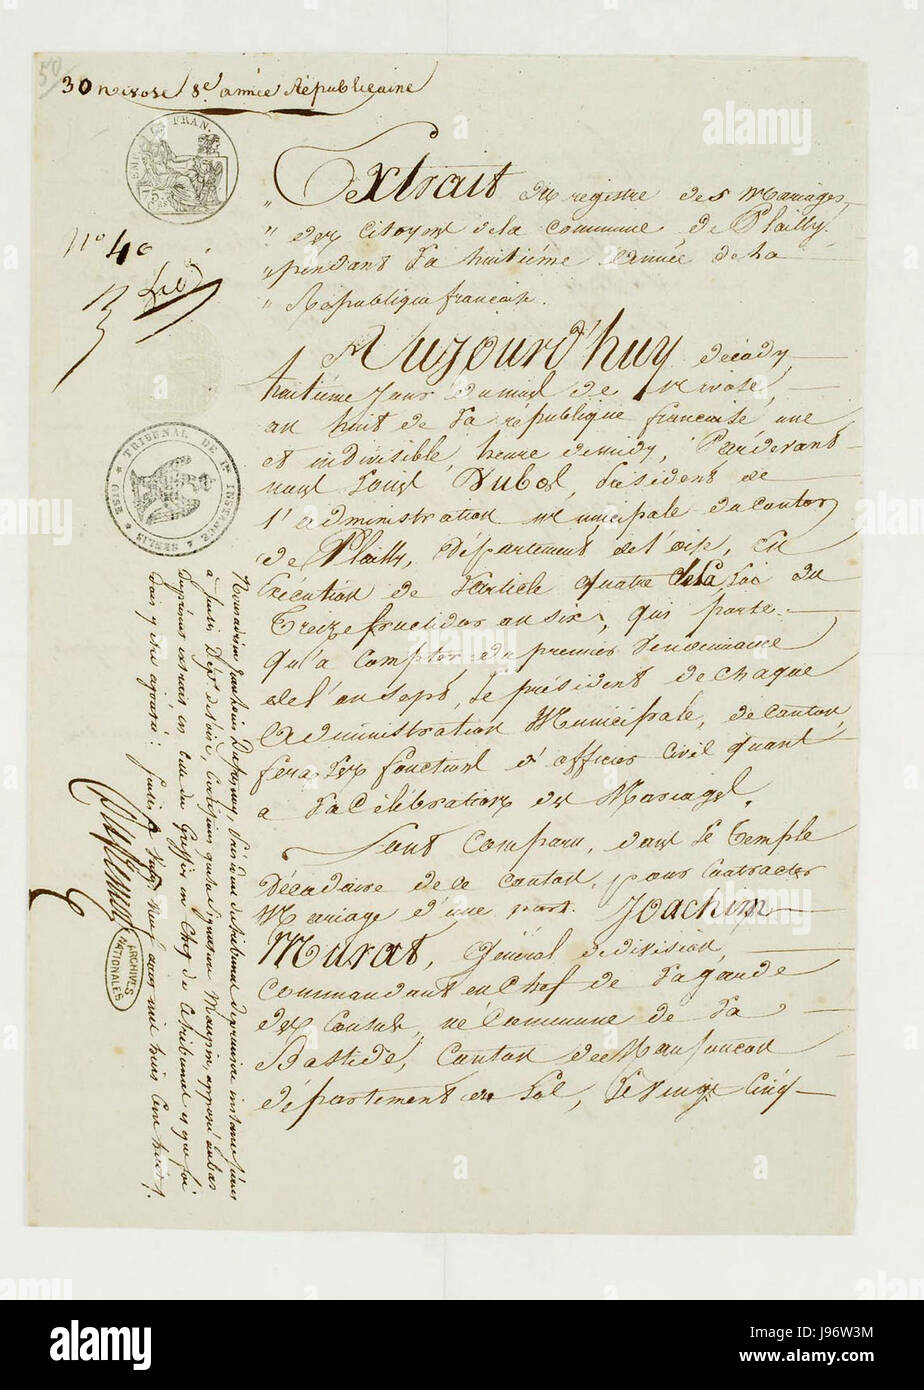 50
30 nivose 8e. année Républicaine
EMP. FRAN.
No 40
Extrait du registre des Mariages
" des citoyens de la commune de Plailly.
" pendant La huitième Année de La
" République française.
Aujourd'huy, décady,
huitième Jour du mois de nivose,
an huit de La république francaise une
et indivisible, heure de midy, Pardevant
nous Louis Dubos, Président de
l'administration municipale du canton
de Plailly, département de l'oise, En
Exécution de L'article quatre de La Loi du
Treize fructidor an six, qui porte
qu'à compter du premier Vendemiaire
de l'an sept, Le président de chaque
Administration Municipale, de canton,
fera Les fonctions d'officier civil quant
a La Célébration des Mariages.
Sont Comparu, dans Le Temple
Décadaire de ce canton, pour Contracter
Mariage d'une part. Joachim
Murat, Général de division,
commandant en Chef de La garde
des Consuls, né Commune de La
Bastide, Canton de Monfaucon
département du Lot, Le vingt Cinq
TRIBUNAL DE 1re INSTANCE A SENLIS OISE
Nous président du tribunal de première instance séant
à Senlis Dépt. de l'oise, Certifions que la Signature apposée au bas
du présent extrait est celle du Greffier en Chef de ce tribunal et que foi
doit y être ajoutée: Senlis le Vingt Neuf mil huit Cent huit.
ARCHIVES NATIONALES
alamy
a
a
alamy
a
a
alamy
a
alamy
Image ID: J96W3M
www.alamy.com